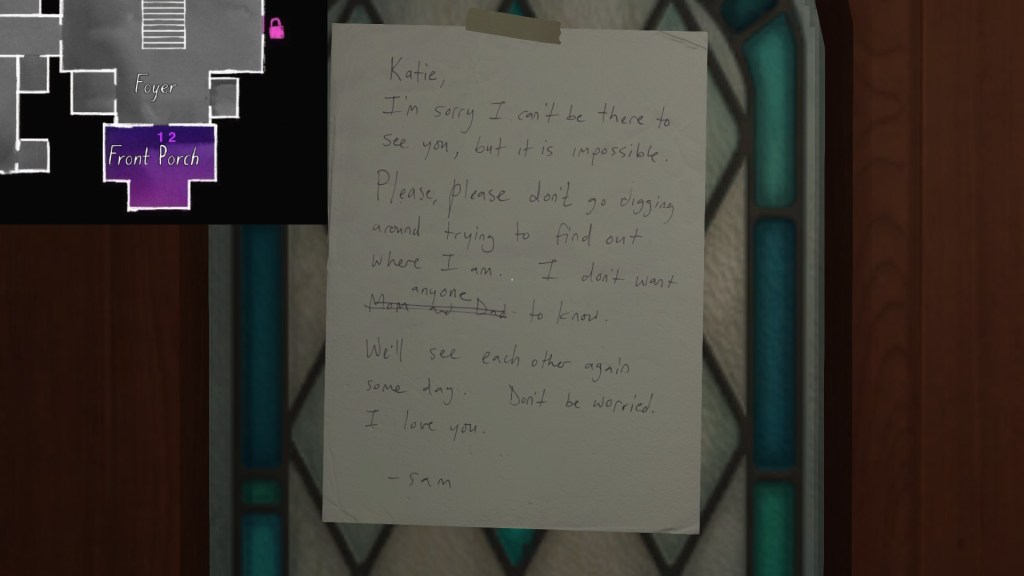 Foyer
12
Front Porch
Katie,
I'm sorry I can't be there to
see you, but it is impossible.
Please, please don't go digging
around trying to find out
where I am. I don't want
anyone
Mom and Dad to know.
We'll see each other again
some day. Don't be worried.
I love you.
- Sam